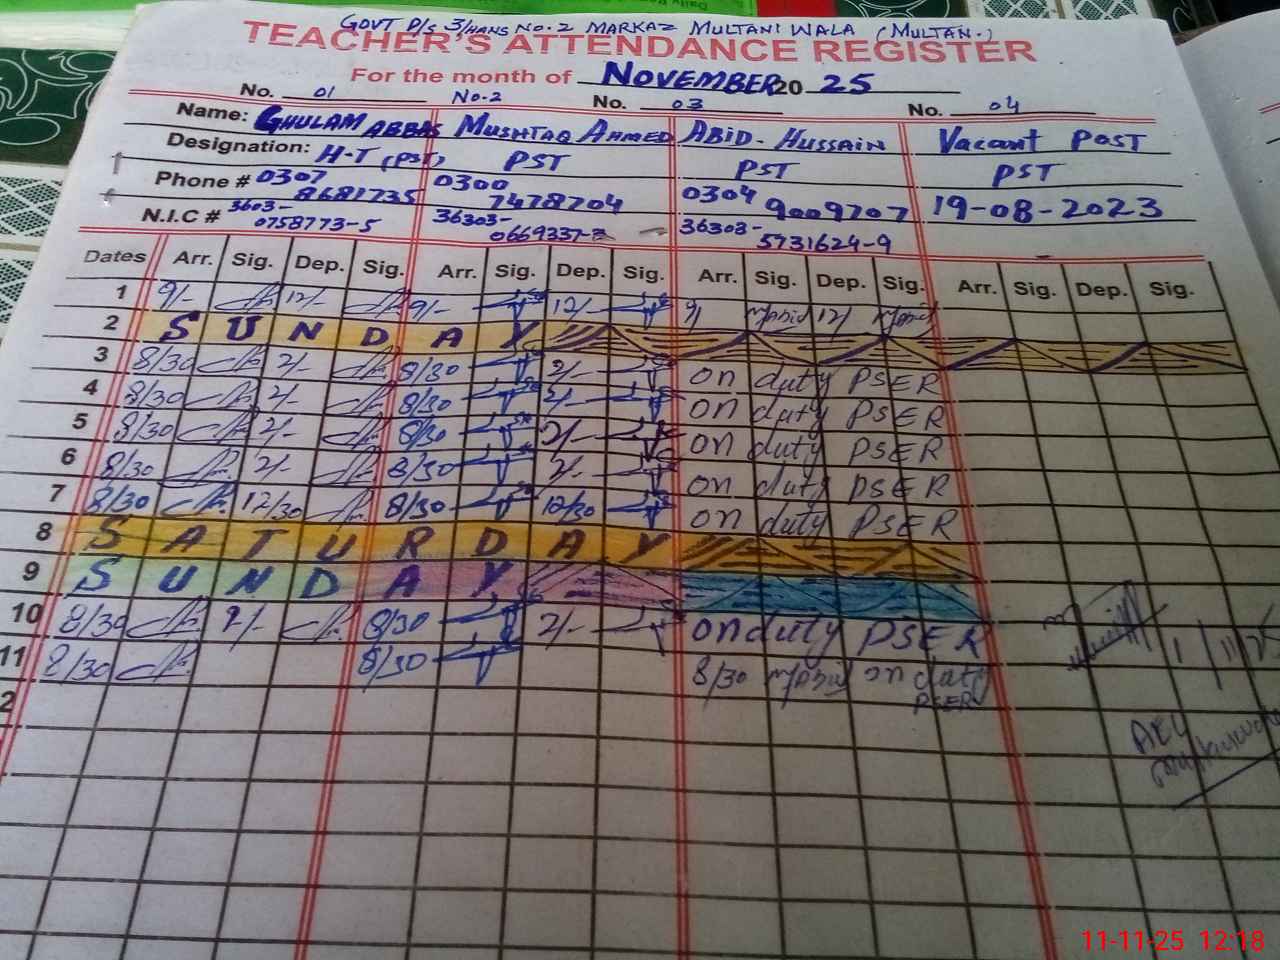 GOVT P/S 3/HANS NO.2 MARKAZ MULTANI WALA (MULTAN.)
TEACHER'S ATTENDANCE REGISTER
For the month of NOVEMBER 20 25
No. 01 No.2 No. 03 No. 04
Name: GHULAM ABBAS MUSHTAQ AHMED ABID. HUSSAIN Vacant POST
Designation: H-T (PST) PST PST PST
Phone # 0307 8681735 0300 7478704 0304 9009707 19-08-2023
N.I.C # 3603-0758773-5 36303-0669337- 36303-5731624-9
Dates Arr. Sig. Dep. Sig. Arr. Sig. Dep. Sig. Arr. Sig. Dep. Sig. Arr. Sig. Dep. Sig.
1 9/- 12/- 9/- 12/- 9/ M/Abid 12/ M/Abid
2 SUNDAY
3 8/30 2/- 8/30 2/- on duty PSER
4 8/30 2/- 8/30 2/- on duty PSER
5 8/30 2/- 8/30 2/- on duty PSER
6 8/30 2/- 8/30 2/- on duty PSER
7 8/30 12/30 8/30 12/30 on duty PSER
8 SATURDAY
9 SUNDAY
10 8/30 2/- 8/30 2/- on duty PSER
11 8/30 8/30 8/30 M/Abid on duty PSER
2
11/11/25
AEO
11-11-25 12:18